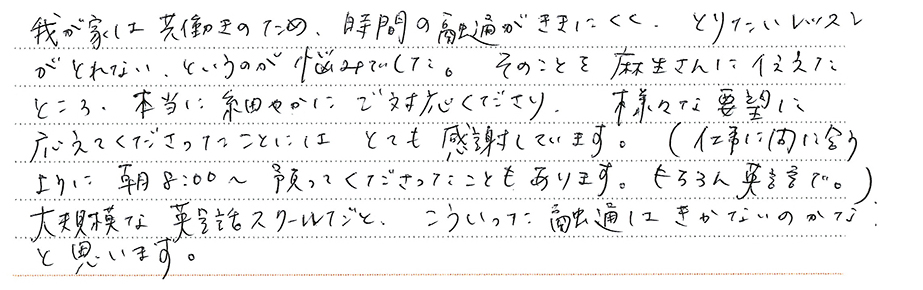 我が家は共働きのため、時間の融通がききにくく、とりたいレッスン
がとれない、というのが悩みでした。そのことを麻生さんに伝えた
ところ、本当に細やかにご対応くださり、様々な要望に
応えてくださったことにはとても感謝しています。(仕事に間に合う
ように朝8:00~預ってくださったこともあります。もちろん英語で。)
大規模な英会話スクールだと、こういった融通はきかないのかな…
と思います。